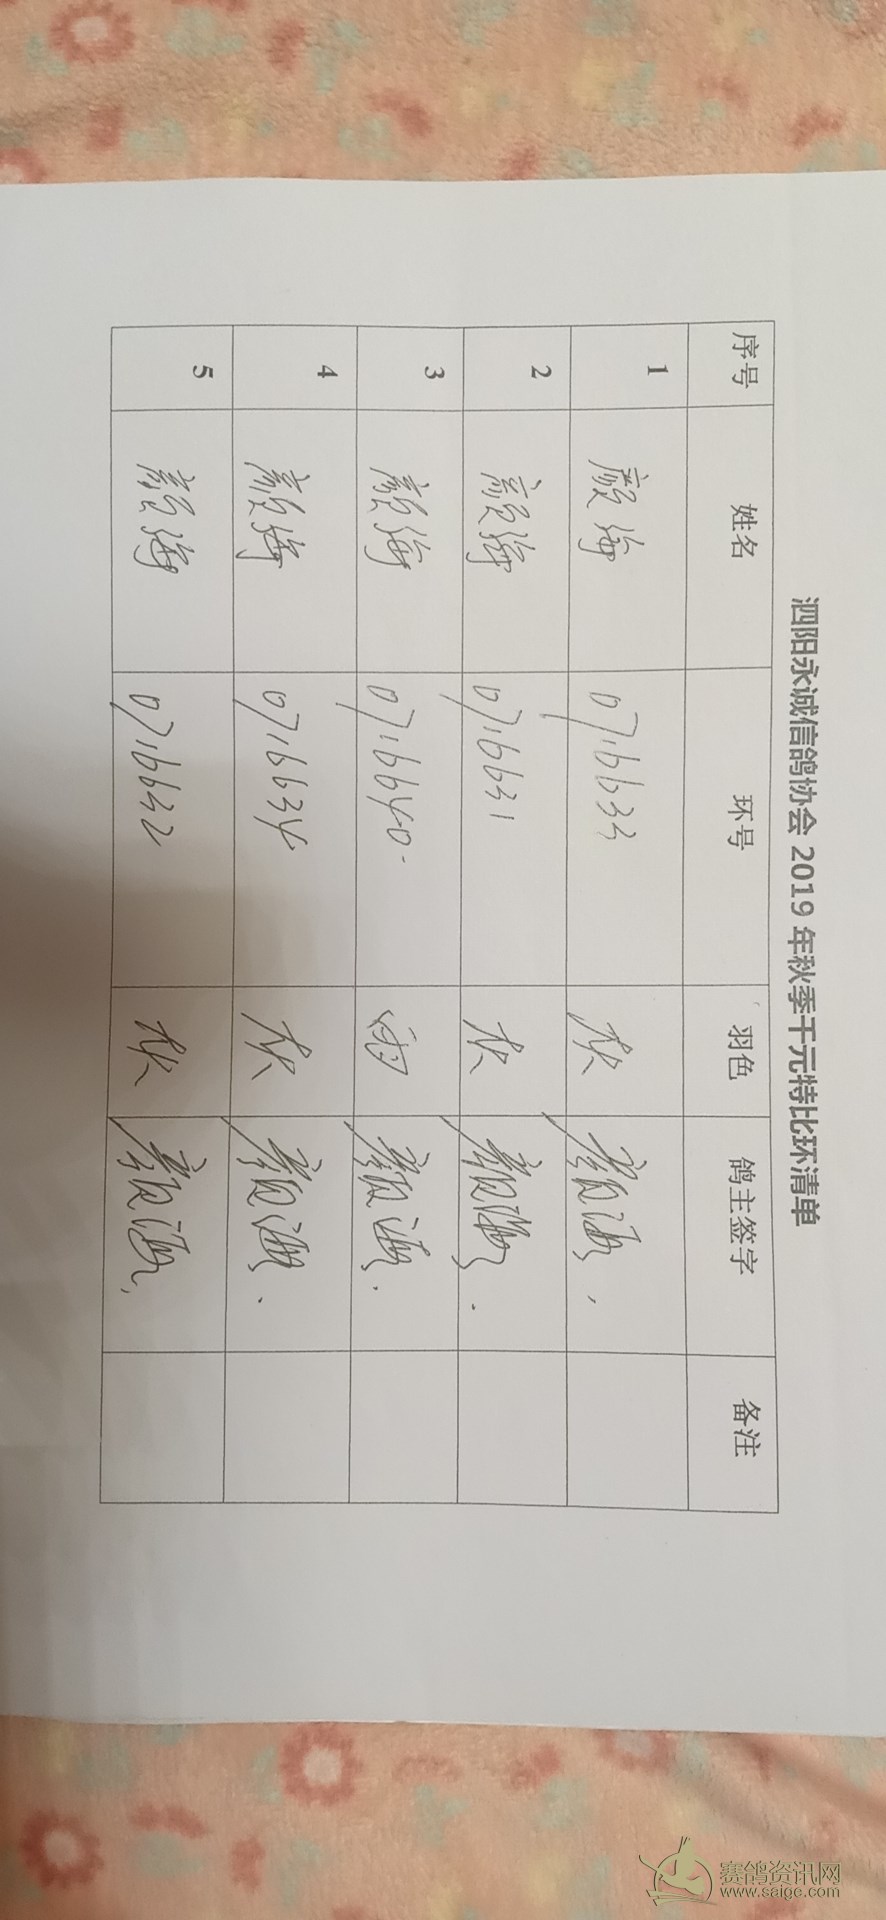 泗阳永诚信鸽协会 2019 年秋季千元特比环清单
序号 姓名 环号 羽色 鸽主签字 备注
1 颜海 0716633 灰 颜海
2 颜海 0716631 灰 颜海
3 颜海 0716640 雨 颜海
4 颜海 0716634 灰 颜海
5 颜海 0716632 灰 颜海
赛鸽资讯网
www.saige.com